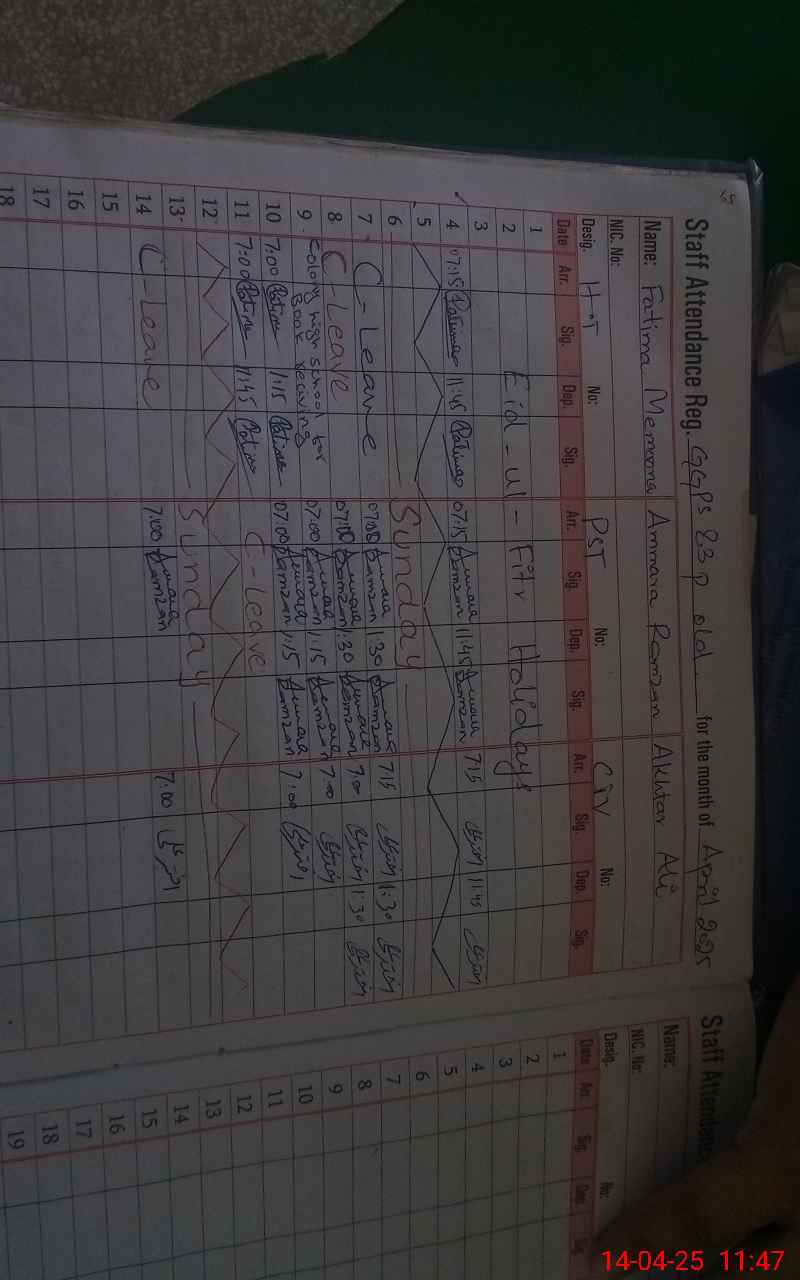 65
Staff Attendance Reg. GGPS 83 P old for the month of April 2025
Name: Fatima Memoona Ammara Ramzan Akhtar Ali
NIC. No:
Desig. H.T No: PST No: CIV No:
Date Arr. Sig. Dep. Sig. Arr. Sig. Dep. Sig. Arr. Sig. Dep. Sig.
1
2 Eid-ul-Fitr Holidays
3
4 07:15 Fatima 11:45 Fatima 07:15 Ammara Ramzan 11:45 Ammara Ramzan 7:15 11:45
5
6 Sunday
7 C-Leave 07:00 Ammara Ramzan 1:30 Ammara Ramzan 7:15 1:30
8 C-Leave 07:00 Ammara Ramzan 1:30 Ammara Ramzan 7:00 1:30
9 Colony high school for
Book receiving 07:00 Ammara Ramzan 1:15 Ammara Ramzan 7:00
10 7:00 Fatima 1:15 Fatima 07:00 Ammara Ramzan 1:15 Ammara Ramzan 7:00
11 7:00 Fatima 11:45 Fatima C-Leave
12
13 Sunday
14 C-Leave 7:00 Ammara Ramzan 7:00
15
16
17
18
Staff Attendance
Name:
NIC. No:
Desig. No:
Date Arr. Sig. Dep. Sig
1
2
3
4
5
6
7
8
9
10
11
12
13
14
15
16
17
18
19
14-04-25 11:47